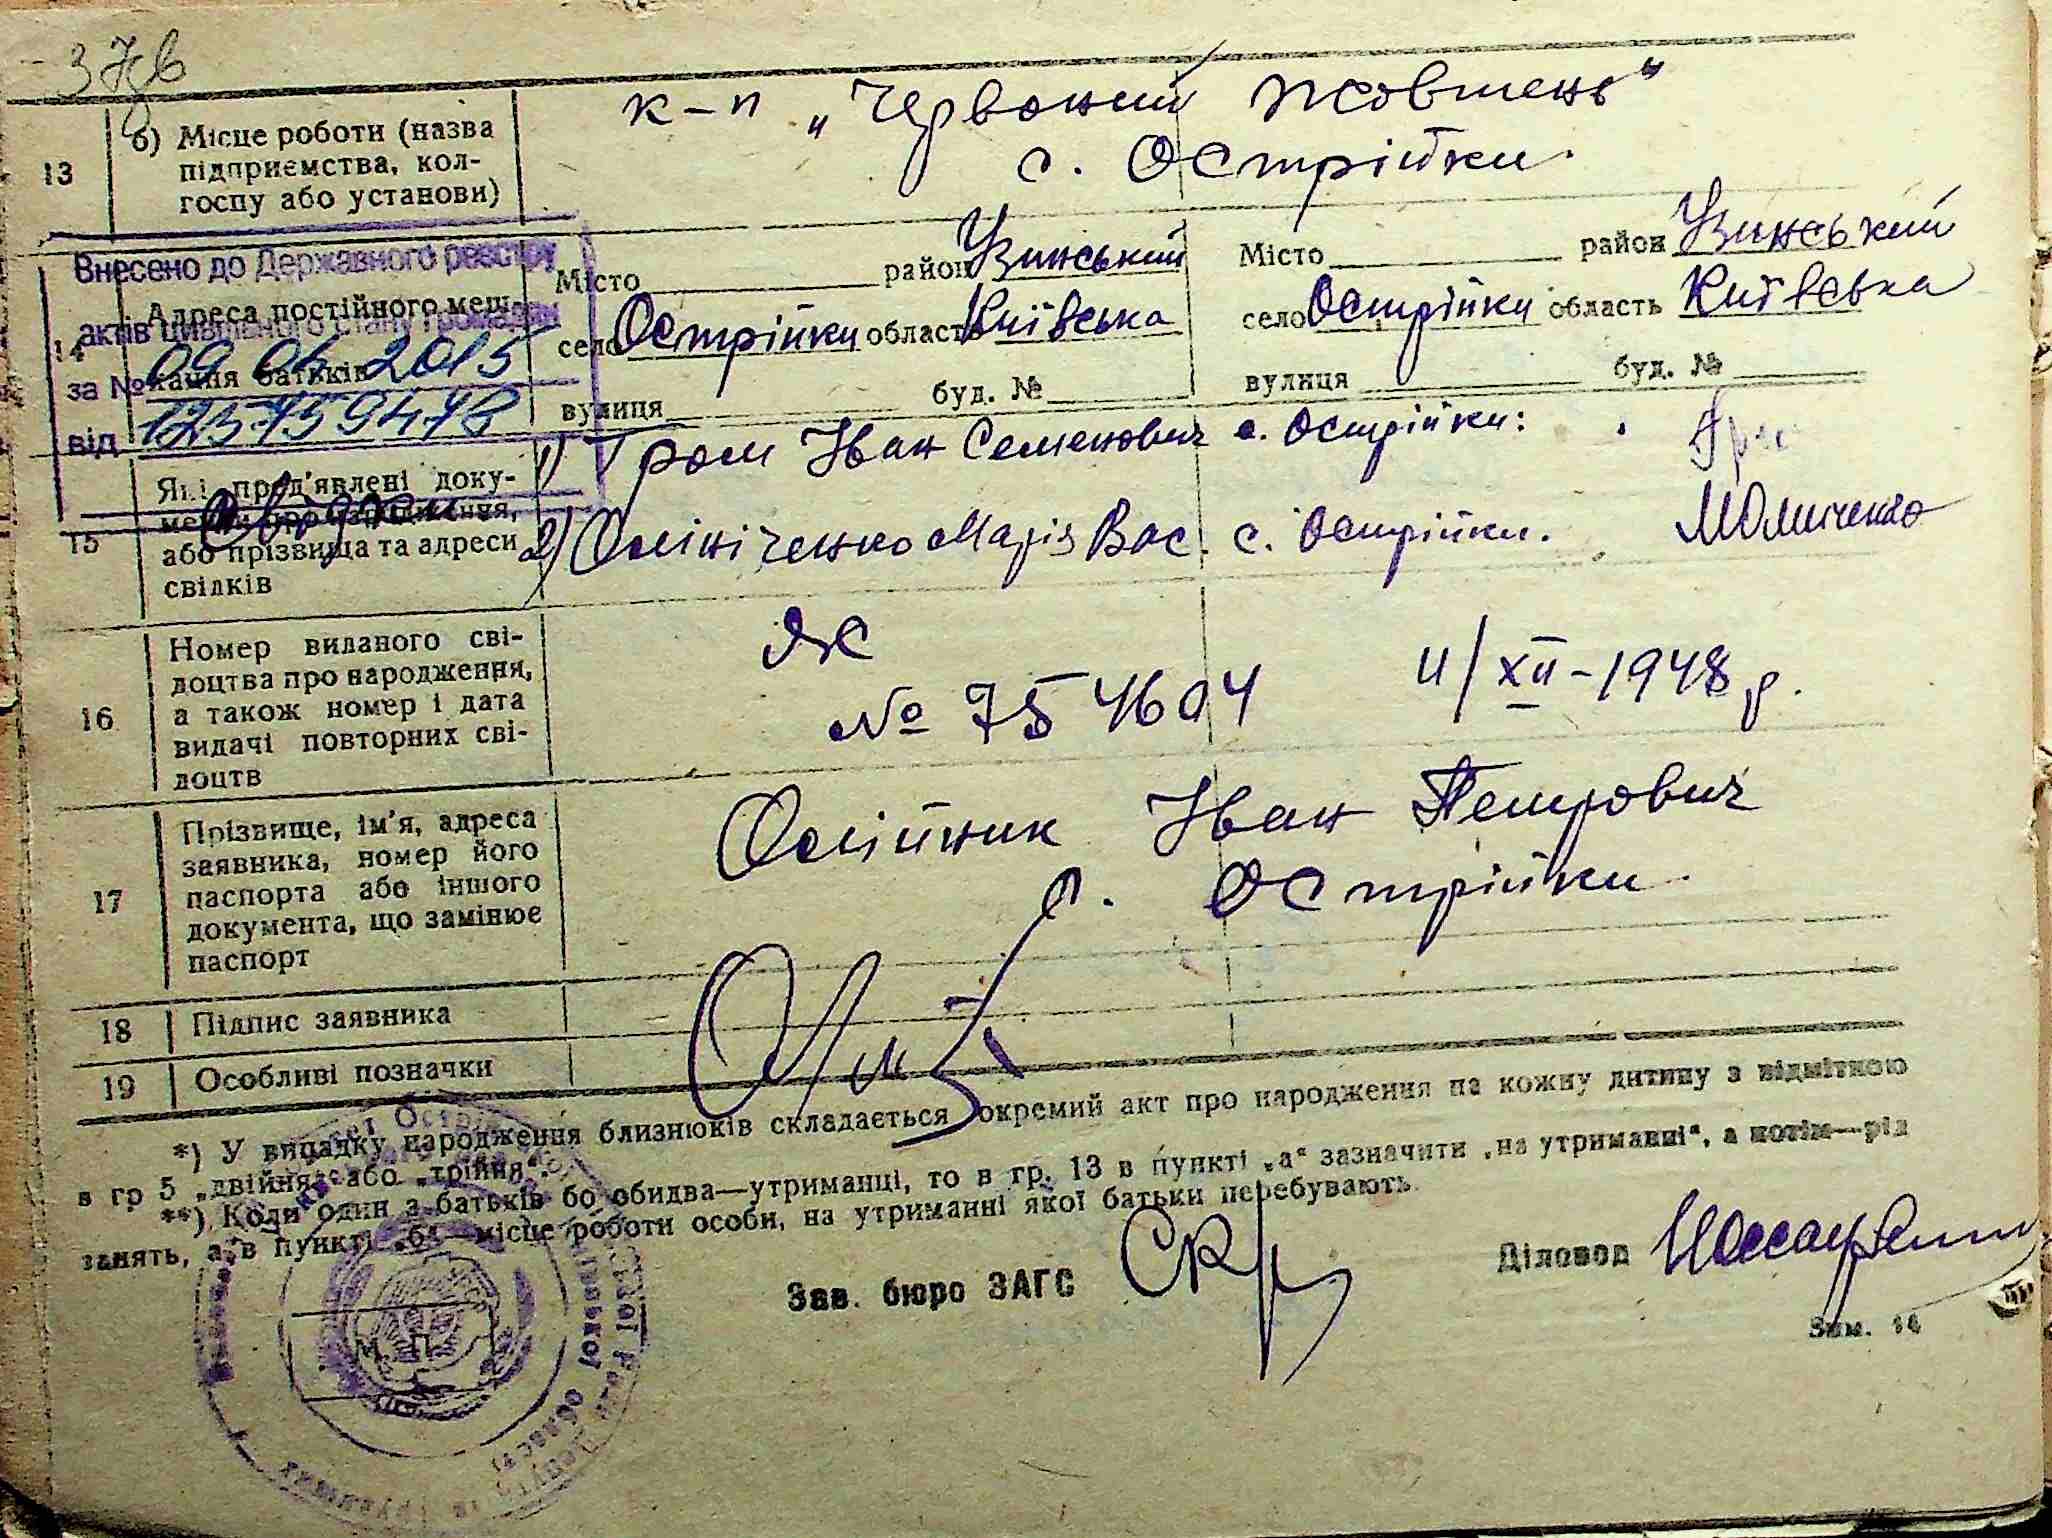 37в
13
б) Місце роботи (назва
підприємства, кол-
госпу або установи)
к-п „Червоний Жовтень"
с. Острійки.
Внесено до Державного реєстру
актів цивільного стану громадян
за № 09 06 2015
від 1257159478
14
Адреса постійного меш-
кання батьків
Місто район Узинський
село Острійки область Київська
вулиця буд. №
Місто район Узинський
село Острійки область Київська
вулиця буд. №
15
Які пред'явлені доку-
менти про народження,
або прізвища та адреси
свідків
1) Гром Іван Семенович с. Острійки:
2) Олініченко Марія Вас. с. Острійки.
16
Номер виданого сві-
доцтва про народження,
а також номер і дата
видачі повторних сві-
доцтв
ЯС
№ 754604 11/XII-1948 р.
17
Прізвище, ім'я, адреса
заявника, номер його
паспорта або іншого
документа, що замінює
паспорт
Олійник Іван Петрович
с. Острійки.
18
Підпис заявника
19
Особливі позначки
*) У випадку народження близнюків складається окремий акт про народження на кожну дитину з відміткою
в гр 5 „двійня" або „трійня".
**) Коли один з батьків бо обидва—утриманці, то в гр. 13 в пункті „а" зазначити „на утриманні", а потім—рід
занять, а в пункті „б"—місце роботи особи, на утриманні якої батьки перебувають.
М. П.
Зав. бюро ЗАГС
Діловод
Зам. 14